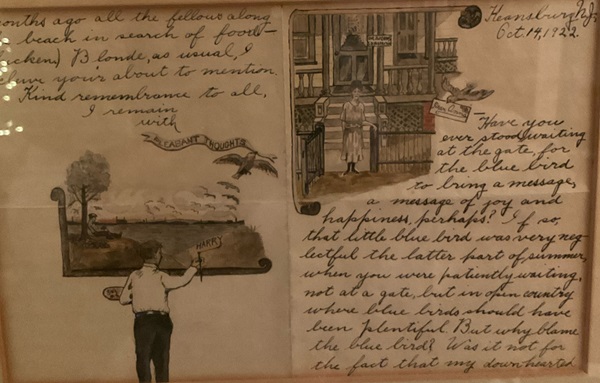 onths ago all the fellows along
beach in search of food -
icken) Blonde, as usual, I
your's about to mention.
Kind remembrance to all,
I remain
with
PLEASANT THOUGHTS
HARRY
Keansburg N.J.
Oct. 14, 1922
Have you
ever stood waiting
at the gate, for
the blue bird
to bring a message,
a message of joy and
happiness, perhaps? If so,
that little blue bird was very neg-
lectful the latter part of summer,
when you were patiently waiting,
not at a gate, but in open country
where blue birds should have
been plentiful But why blame
the blue bird? Was it not for
the fact that my down hearted